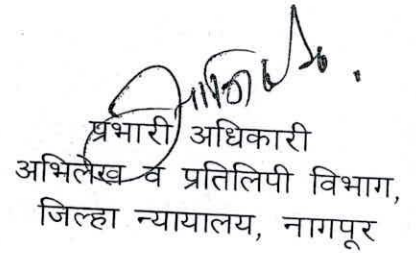 प्रभारी अधिकारी
अभिलेख व प्रतिलिपी विभाग,
जिल्हा न्यायालय, नागपूर